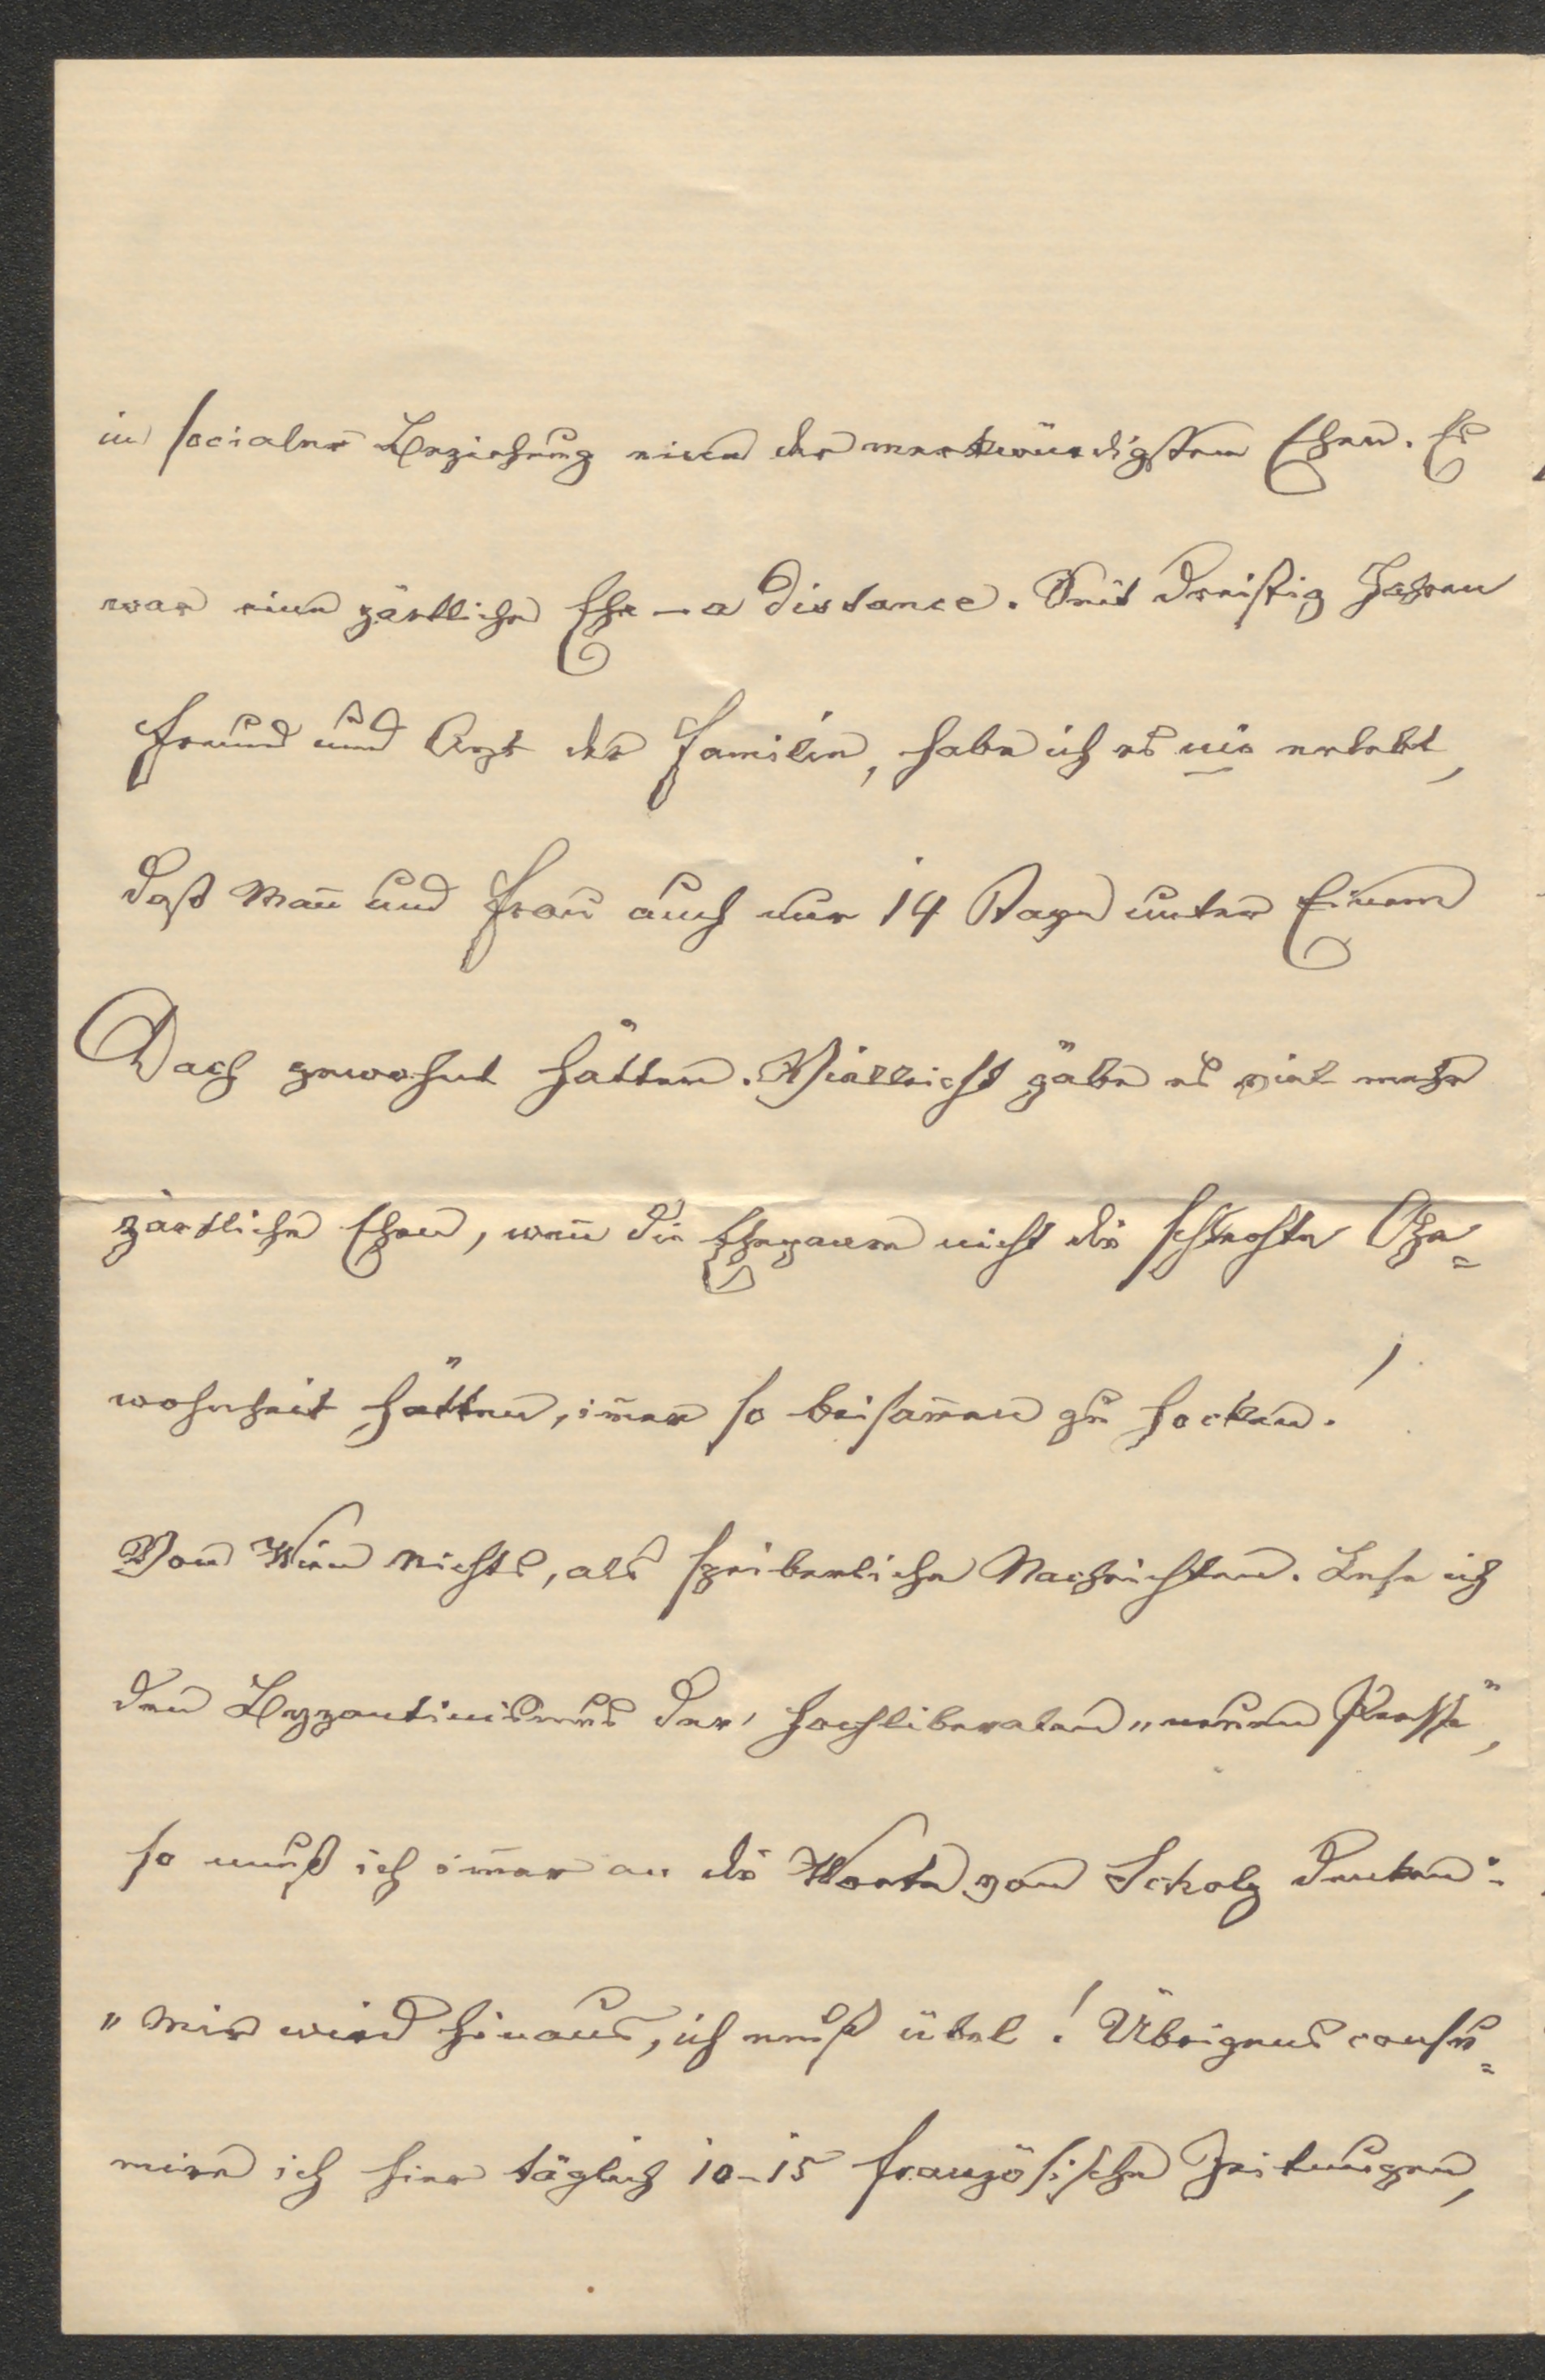 in socialer Beziehung eine der merkwürdigsten Ehen. Es
war eine zärtliche Ehe – a distance. Seit dreißig Jahren
Freund und Arzt der Familie, habe ich es nie erlebt,
daß Man̄ und Frau auch nur 14 Tage unter Einem
Dach gewohnt hätten. Vielleicht gäbe es viel mehr
zärtliche Ehen, wen̄ die Ehepaare nicht die schlechte Ge=
wohnheit hätten, im̄er so beisam̄en zu hocken!
Von Wien nichts, als speiberliche Nachrichten. Lese ich
den Byzantinismus der hochliberalen „neuen Presse",
so muß ich im̄er an die Worte von Scholz denken:
„Mir wird hinaus, ich muß übel! Übrigens consu=
mire ich hier täglich 10–15 französische Zeitungen,